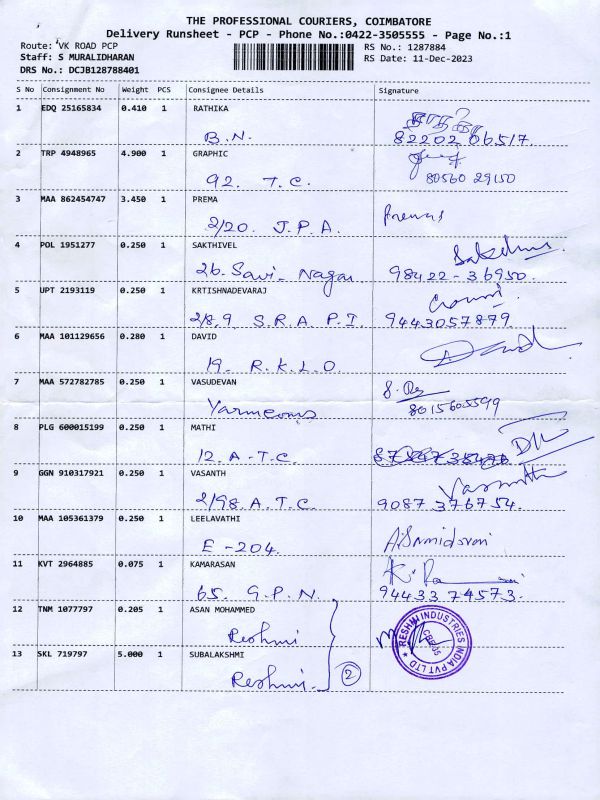 THE PROFESSIONAL COURIERS, COIMBATORE
Delivery Runsheet - PCP - Phone No.:0422-3505555 - Page No.:1
Route: VK ROAD PCP RS No.: 1287884
Staff: S MURALIDHARAN RS Date: 11-Dec-2023
DRS No.: DCJB128788401
S No Consignment No Weight PCS Consignee Details Signature
1 EDQ 25165834 0.410 1 RATHIKA
B.N. 82202 06517.
2 TRP 4948965 4.900 1 GRAPHIC
92. T.C. 80560 29150
3 MAA 862454747 3.450 1 PREMA
2/20. J.P.A.
4 POL 1951277 0.250 1 SAKTHIVEL
26. Savi- Nagar 98422-36950.
5 UPT 2193119 0.250 1 KRTISHNADEVARAJ
2/8,9 S.R.A P.I. 9443057879
6 MAA 101129656 0.280 1 DAVID
19. R.K.L.O.
7 MAA 572782785 0.250 1 VASUDEVAN
8015605599
8 PLG 600015199 0.250 1 MATHI
12. A-T.C.
9 GGN 910317921 0.250 1 VASANTH
2/98. A.T.C. 9087 376754.
10 MAA 105361379 0.250 1 LEELAVATHI
E-204.
11 KVT 2964885 0.075 1 KAMARASAN
65. G.P.N. 94433 74573.
12 TNM 1077797 0.205 1 ASAN MOHAMMED
Reshmi
RESHMI INDUSTRIES INDIA PVT LTD
CBE-35
13 SKL 719797 5.000 1 SUBALAKSHMI
Reshmi. 2